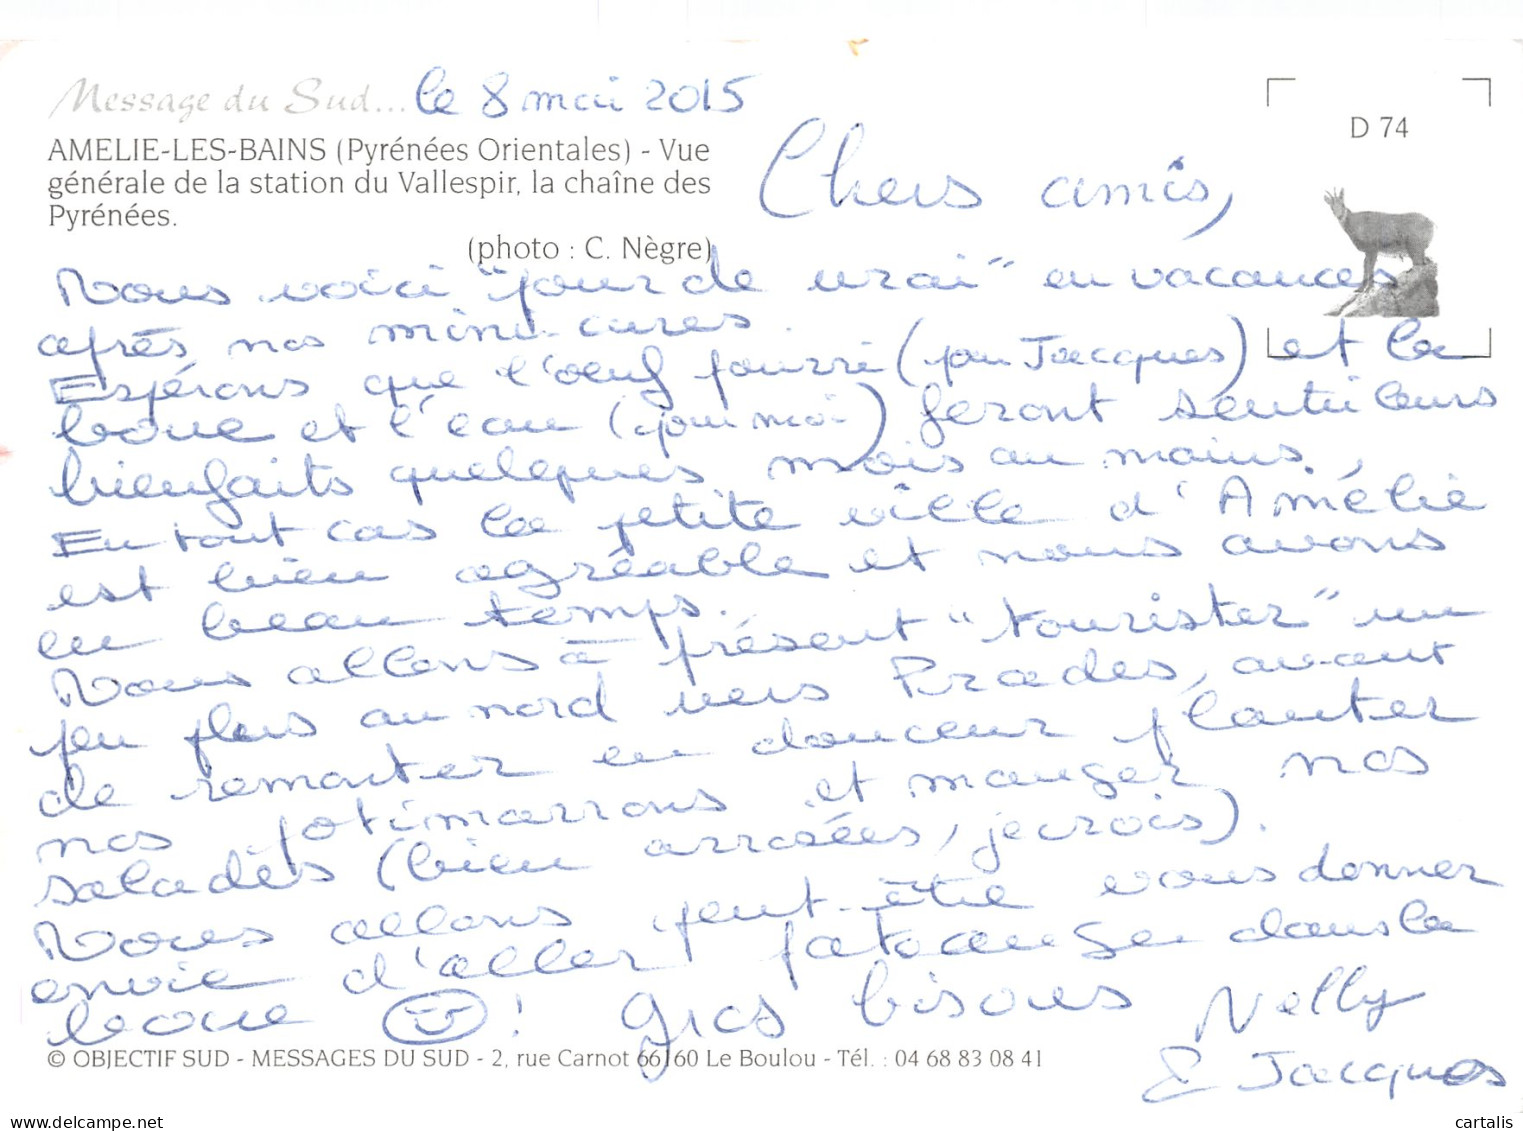 Message du Sud... le 8 mai 2015
AMELIE-LES-BAINS (Pyrénées Orientales) - Vue
générale de la station du Vallespir, la chaîne des
Pyrénées.
(photo : C. Nègre)
D 74
Chers amis,
Nous voici "pour de vrai" en vacances
après nos mini-cures.
Espérons que l'oeuf fourré (pour Jacques) et la
boue et l'eau (pour moi) feront sentir leurs
bienfaits quelques mois au moins.
En tout cas la petite ville d'Amélie
est bien agréable et nous avons
eu beau temps.
Nous allons à présent "tourister" un
peu plus au nord vers Prades, avant
de remonter en douceur planter
nos potimarrons et manger nos
salades (bien arrosées, je crois).
Nous allons peut-être vous donner
envie d'aller patauger dans la
boue !
Gros bisous Nelly
& Jacques
© OBJECTIF SUD - MESSAGES DU SUD - 2, rue Carnot 66160 Le Boulou - Tél. : 04 68 83 08 41
www.delcampe.net
cartalis